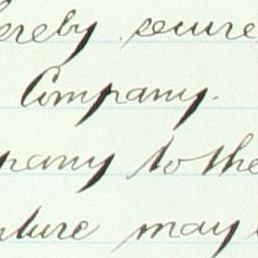 hereby secure
Company.
pany to the
nture may